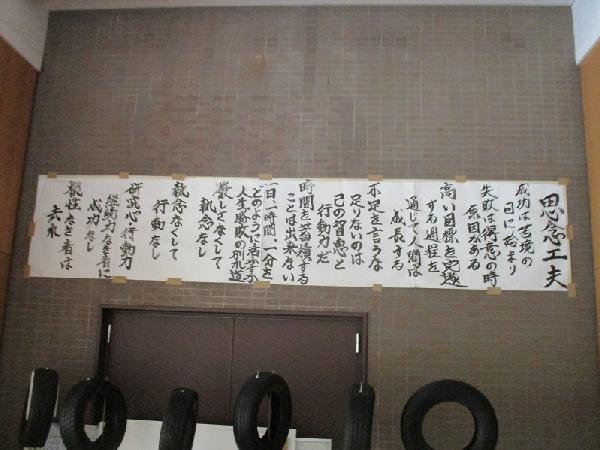 思念工夫
成功は苦境の
日に始まり
失敗は得意の時
原因がある
高い目標を完遂
する過程を
通じて人間は
成長する
不足を言うな
足りないのは
己の智恵と
行動力だ
時間を蓄積する
ことは出来ない
一日一時間一分を
どのように活かすか
人生勝敗の別れ道
厳しさなくして
執念なし
執念なくして
行動なし
研究心行動力
継続力なき者に
成功なし
根性なき者は
去れ